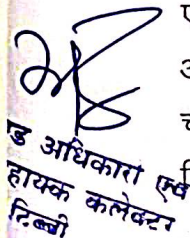 ए
अ
च
ड अधिकारी एवं
हायक कलेक्टर
टिब्बी